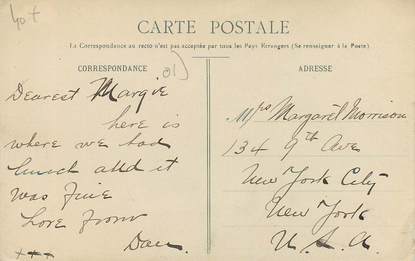 40+
CARTE POSTALE
La Correspondance au recto n'est pas acceptée par tous les Pays Etrangers (Se renseigner à la Poste)
CORRESPONDANCE
ADRESSE
Dearest Margie
here is
where we had
lunch and it
was fine
Love from
Dan.
+++
Mrs Margaret Morrison
134 9th Ave
New York City
New York
U.S.A.